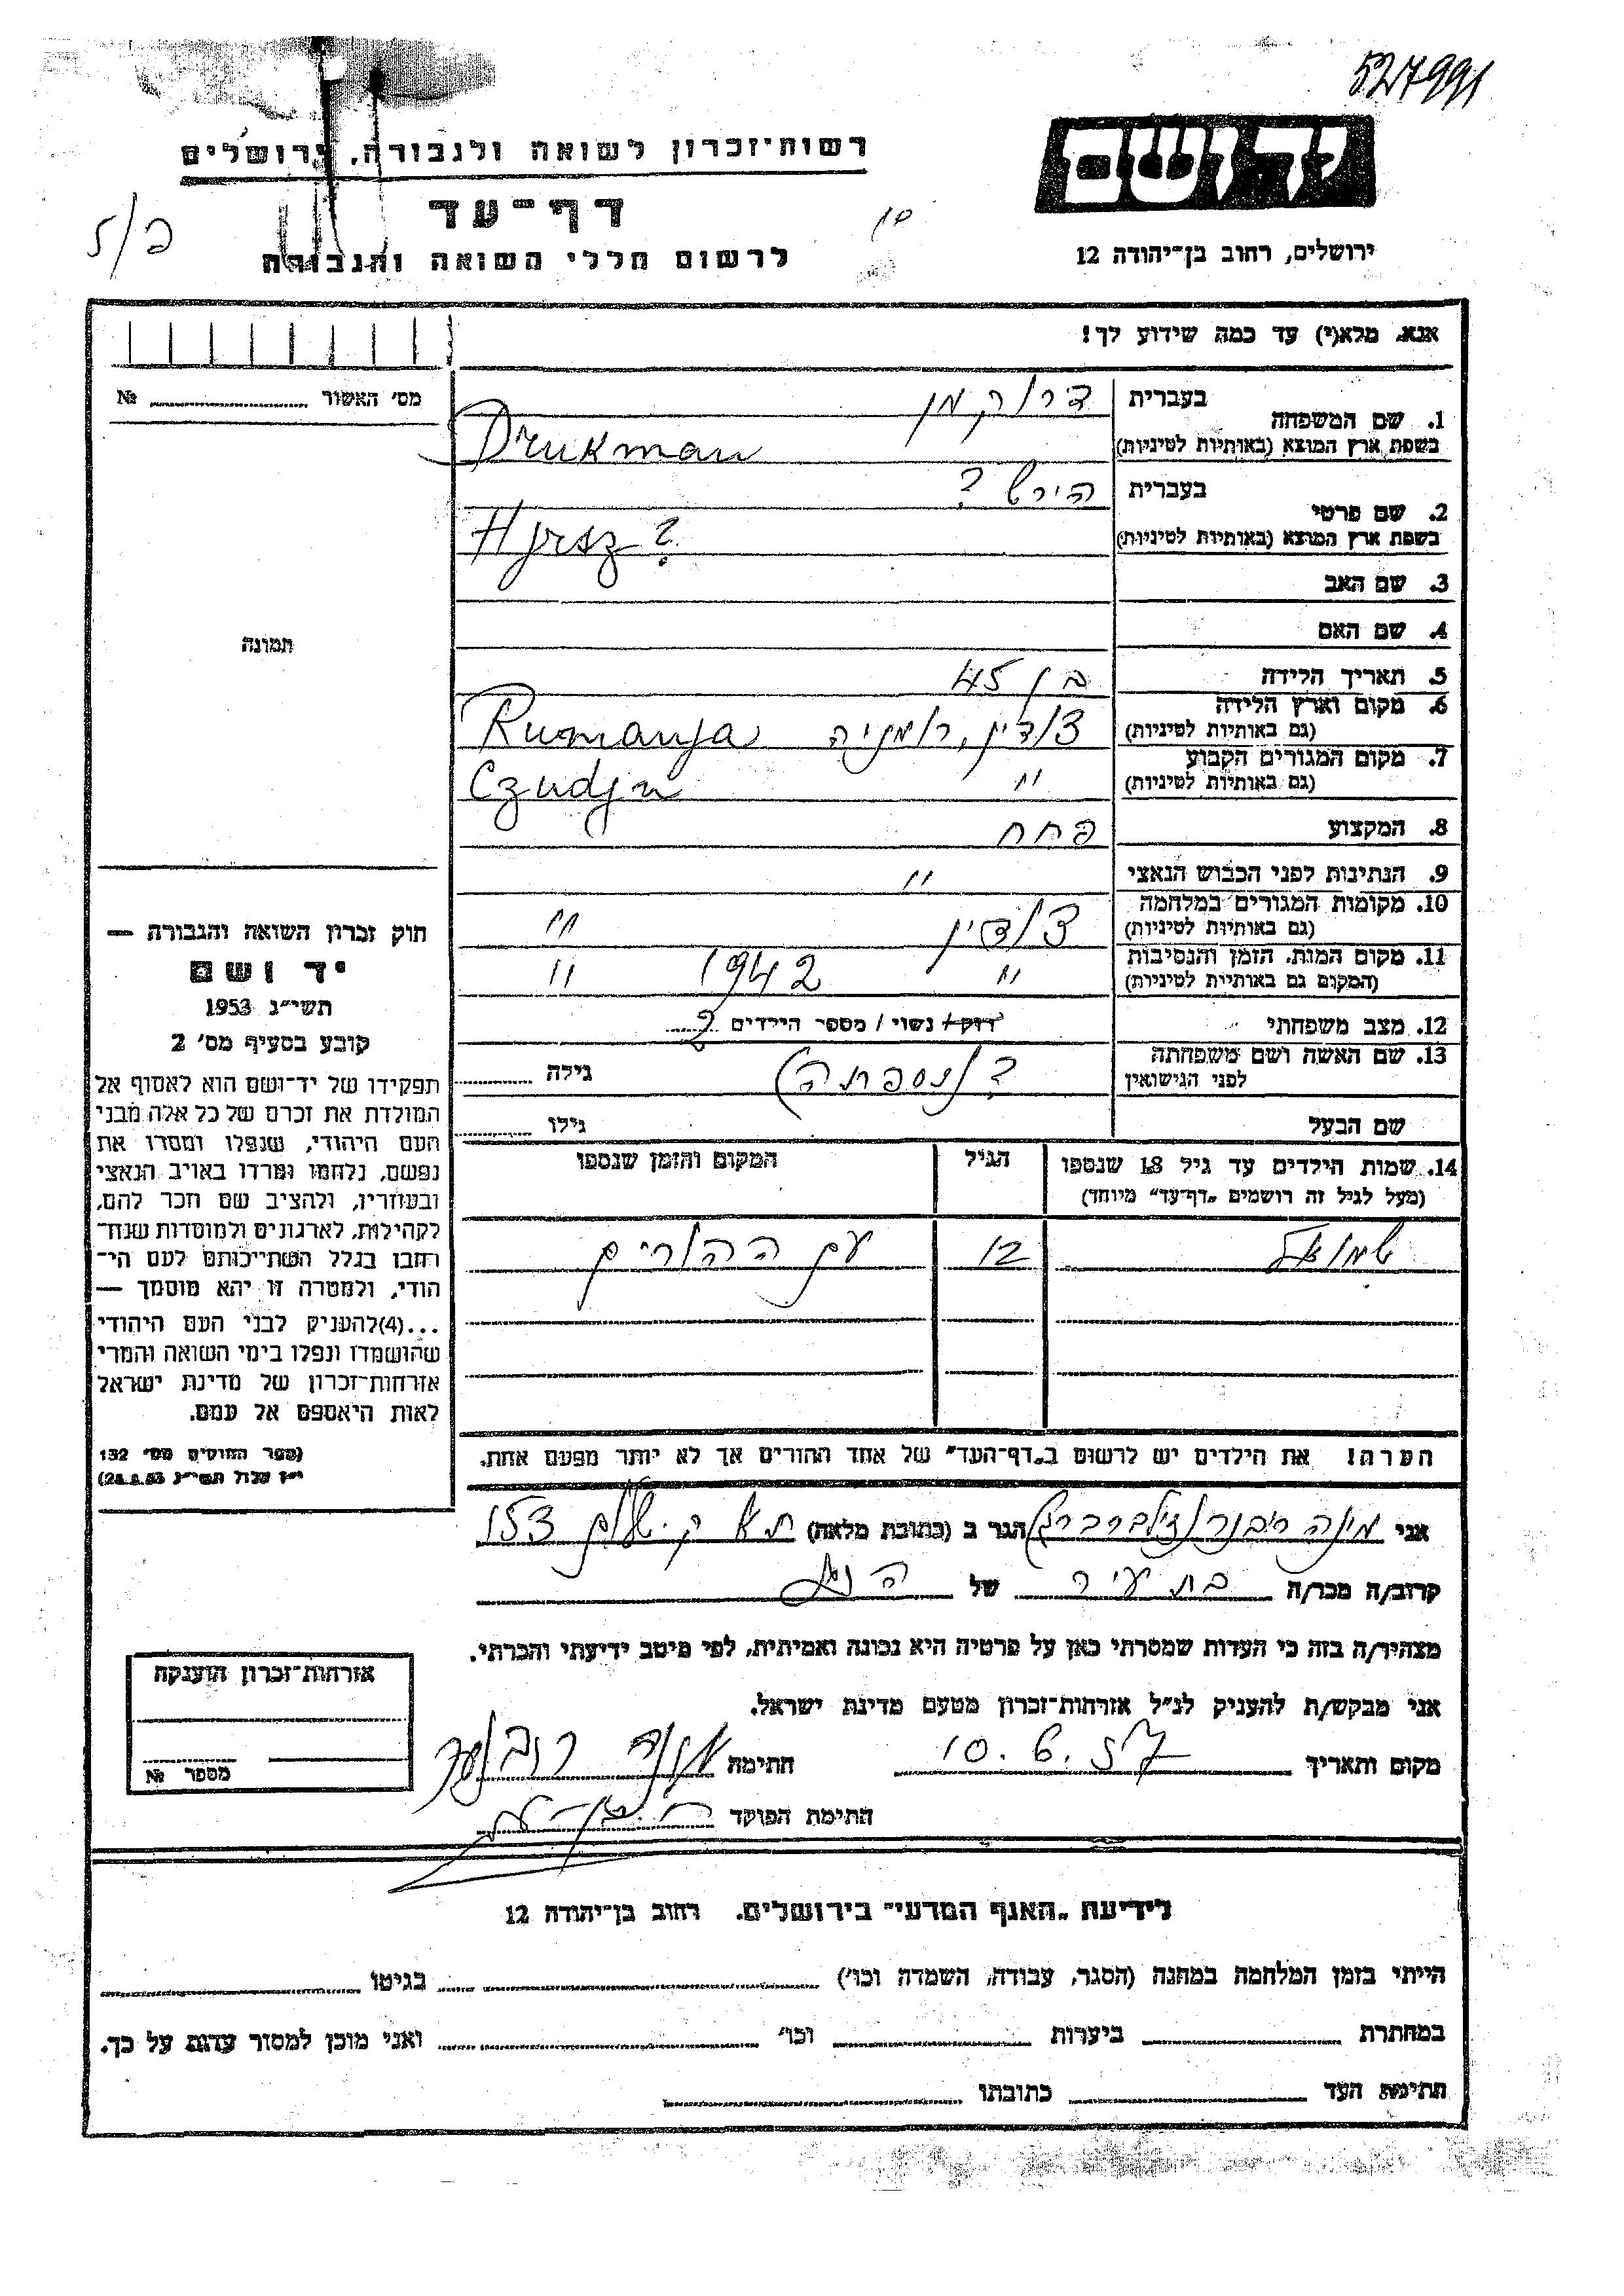 527991
רשות־זכרון לשואה ולגבורה, ירושלים
יד ושם
דף־עד
ירושלים, רחוב בן־יהודה 12
לרשום חללי השואה והגבורה
אנא, מלא(י) עד כמה שידוע לך!
מס' האשור № 
1. שם המשפחה בעברית דרוקמן
בשפת ארץ המוצא (באותיות לטיניות) Drukman
2. שם פרטי בעברית הירש ?
בשפת ארץ המוצא (באותיות לטיניות) Hjrsz ?
3. שם האב
4. שם האם
תמונה
5. תאריך הלידה בן 45
6. מקום וארץ הלידה (גם באותיות לטיניות) צ'ודין, רומניה Rumanja
7. מקום המגורים הקבוע (גם באותיות לטיניות) " Czudjn
8. המקצוע פחח
9. הנתינות לפני הכבוש הנאצי "
10. מקומות המגורים במלחמה (גם באותיות לטיניות) צ'ודין "
11. מקום המות, הזמן והנסיבות (המקום גם באותיות לטיניות) " 1942 "
12. מצב משפחתי רווק / נשוי / מספר הילדים 2
13. שם האשה ושם משפחתה לפני הנישואין ? (נספתה) גילה
שם הבעל גילו
14. שמות הילדים עד גיל 18 שנספו הגיל המקום והזמן שנספו
(מעל לגיל זה רושמים "דף־עד" מיוחד)
שמואל 12 עם ההורים
הערה! את הילדים יש לרשום ב"דף־העד" של אחד ההורים אך לא יותר מפעם אחת.
חוק זכרון השואה והגבורה —
יד ושם
תשי"ג 1953
קובע בסעיף מס' 2
תפקידו של יד־ושם הוא לאסוף אל
המולדת את זכרם של כל אלה מבני
העם היהודי, שנפלו ומסרו את
נפשם, נלחמו ומרדו באויב הנאצי
ובעוזריו, ולהציב שם וזכר להם,
לקהילות, לארגונים ולמוסדות שנח־
רבו בגלל השתייכותם לעם הי־
הודי, ולמטרה זו יהא מוסמך —
...(4)להעניק לבני העם היהודי
שהושמדו ונפלו בימי השואה והמרי
אזרחות־זכרון של מדינת ישראל
לאות היאספם אל עמם.
(ספר החוקים מס' 132
י"ז אלול תשי"ג 28.8.53)
אני מינה הגר ב (כתובת מלאה) ת"א ק. שלום
קרוב/ה מכר/ה בת עיר של הנ"ל
מצהיר/ה בזה כי העדות שמסרתי כאן על פרטיה היא נכונה ואמיתית, לפי מיטב ידיעתי והכרתי.
אני מבקש/ת להעניק לנ"ל אזרחות־זכרון מטעם מדינת ישראל.
מקום ותאריך 10.6.57 חתימה
חתימת הפוקד
אזרחות־זכרון הוענקה
מספר №
לידיעת "האגף המדעי" בירושלים. רחוב בן־יהודה 12
הייתי בזמן המלחמה במחנה (הסגר, עבודה, השמדה וכו') בגיטו
במחתרת ביערות וכו' ואני מוכן למסור עדות על כך.
חתימת העד כתובתו